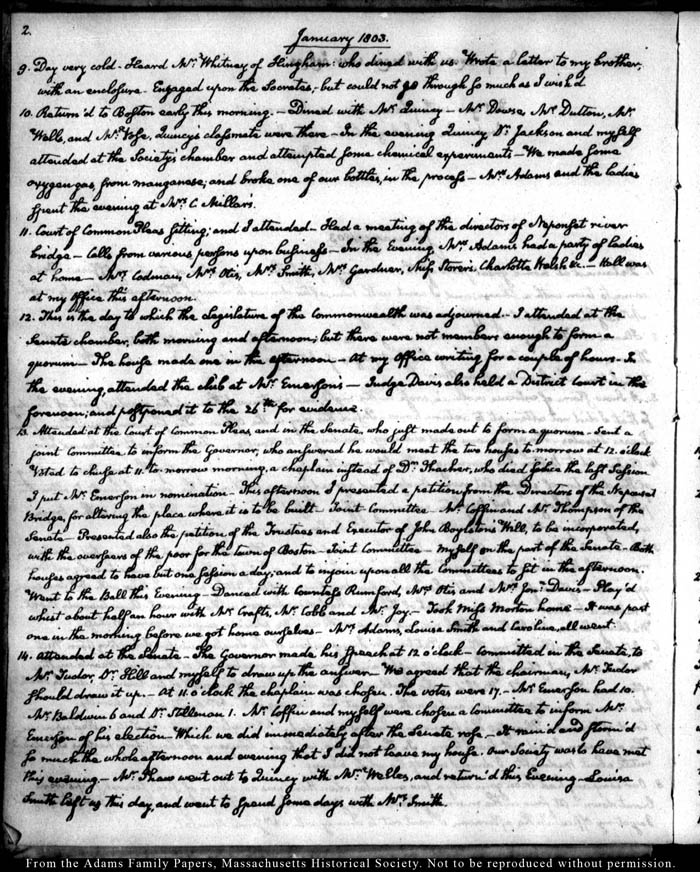 2.
January 1803.
9. Day very cold. Heard Mr. Whitney of Hingham: who dined with us. Wrote a letter to my brother,
with an enclosure. Engaged upon the Socrates; but could not go through so much as I wish'd
10. Return'd to Boston early this morning. — Dined with Mr. Quincy — Mr. Dowse, Mr. Dutton, Mr.
Wells, and Mr. Vose, Quincy's classmate were there — In the evening Quincy, Dr. Jackson and myself
attended at the Society's chamber and attempted some chemical experiments — We made some
oxygen gas, from manganese; and broke one of our bottles, in the process — Mrs. Adams and the ladies
spent the evening at Mrs. C Millars.
11. Court of Common Pleas sitting; and I attended. — Had a meeting of the directors of Neponset river
bridge — Calls from various persons upon business — In the Evening Mrs. Adams had a party of ladies
at home — Mrs. Codman, Mrs. Otis, Mrs. Smith, Mrs. Gardner, Miss Storer, Charlotte Welsh &c. — Hall was
at my Office this afternoon.
12. This is the day to which the Legislature of the Commonwealth was adjourned — I attended at the
Senate chamber, both morning and afternoon; but there were not members enough to form a
quorum — The house made one in the afternoon — At my Office writing for a couple of hours — In
the evening, attended the club at Mr. Emerson's — Judge Davis also held a District Court in the
forenoon; and postponed it to the 26th for evidence.
13. Attended at the Court of Common Pleas, and in the Senate, who just made out to form a quorum — Sent a
joint Committee to inform the Governor, who answered he would meet the two houses to-morrow at 12. o'clock
Voted to chuse at 11. to-morrow morning, a chaplain instead of Dr. Thacher, who died since the last Session
I put Mr. Emerson in nomination — This afternoon I presented a petition from the Directors of the Neponset
Bridge, for altering the place where it is to be built — Joint Committee Mr. Coffin and Mr. Thompson of the
Senate — Presented also the petition of the Trustees and Executor of John Boylston's Will, to be incorporated,
with the overseers of the poor for the town of Boston — Joint Committee — myself on the part of the Senate — Both
houses agreed to have but one session a day; and to enjoin upon all the Committees to sit in the afternoon.
Went to the Ball this Evening — Danced with Countess Rumford, Mrs. Otis and Mrs. Jona. Davis — Play'd
whist about half an hour with Mr. Crafts, Mr. Cobb and Mr. Joy. — Took Miss Morton home — It was past
one in the morning before we got home ourselves — Mrs. Adams, Louisa Smith and Caroline, all went.
14. Attended at the Senate — The Governor made his Speech at 12 o'clock — Committed in the Senate, to
Mr. Tudor, Dr. Hill and myself to draw up the answer — We agreed that the chairman, Mr. Tudor
should draw it up. — At 11. o'clock the chaplain was chosen. The votes were 17. — Mr. Emerson had 10.
Mr. Baldwin 6 and Dr. Stillman 1. Mr. Coffin and myself were chosen a Committee to inform Mr.
Emerson of his election — Which we did immediately after the Senate rose — It rain'd and storm'd
so much the whole afternoon and evening that I did not leave my house. Our Society was to have met
this evening — Mr. Shaw went out to Quincy with Mr. Welles, and return'd this Evening — Louisa
Smith left us this day, and went to spend some days with Mrs. Smith.
From the Adams Family Papers, Massachusetts Historical Society. Not to be reproduced without permission.